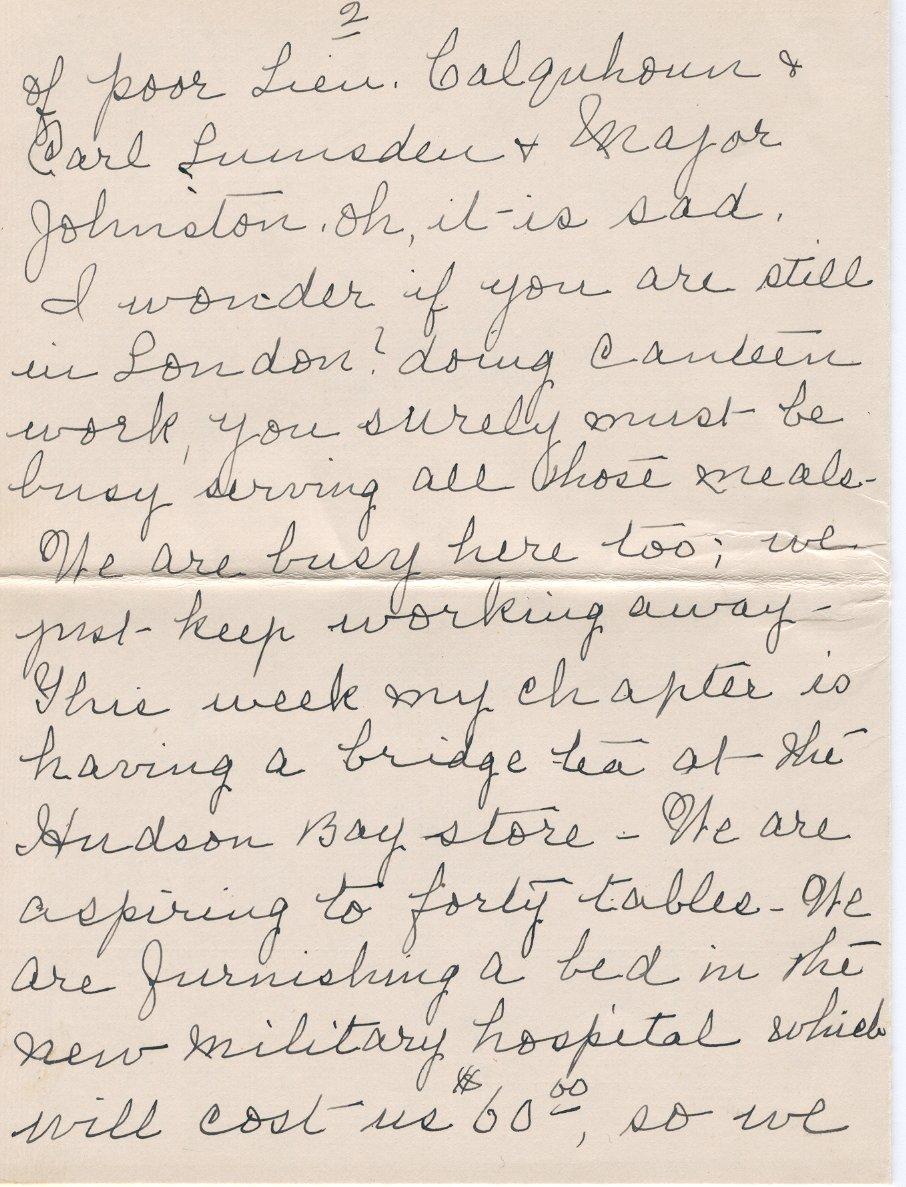 2
of poor Lieu. Calquhoun &
Carl Lumsden & Major
Johnston. Oh, it is sad.
I wonder if you are still
in London? doing Canteen
work, you surely must be
busy serving all those meals-
We are busy here too; we
just keep working away-
This week my chapter is
having a bridge tea at the
Hudson Bay store - We are
aspiring to forty tables - We
are furnishing a bed in the
new military hospital which
will cost us $60.00, so we